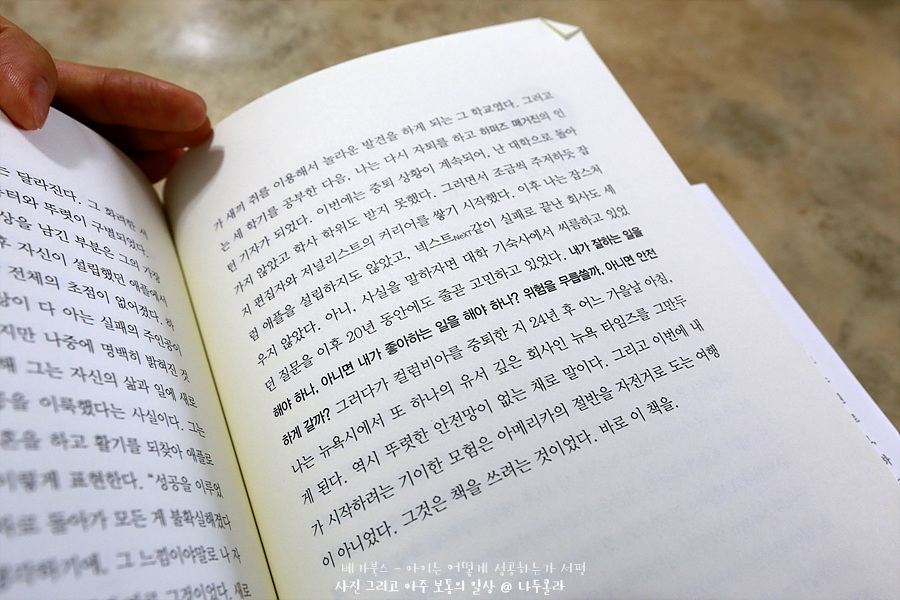 는 달라진다. 그 화려한 서
부터와 뚜렷이 구별되었다.
상을 남긴 부분은 그의 가장
후 자신이 설립했던 애플에서
전체의 초점이 없어졌다. 하
상이 다 아는 실패의 주인공이
지만 나중에 명백히 밝혀진 것
해 그는 자신의 삶과 일에 새로
을 이룩했다는 사실이다. 그는
혼을 하고 활기를 되찾아 애플로
이렇게 표현한다. “성공을 이루었
돌아가 모든 게 불확실해졌다
그 느낌이야말로 나 자
그것이었다. 새로
가 새끼 쥐를 이용해서 놀라운 발견을 하게 되는 그 학교였다. 그리고
는 세 학기를 공부한 다음, 나는 다시 자퇴를 하고 하퍼즈 매거진의 인
턴 기자가 되었다. 이번에는 중퇴 상황이 계속되어, 난 대학으로 돌아
가지 않았고 학사 학위도 받지 못했다. 그러면서 조금씩 주저하듯 잡
지 편집자와 저널리스트의 커리어를 쌓기 시작했다. 이후 나는 잡스처
럼 애플을 설립하지도 않았고, 넥스트NEXT같이 실패로 끝난 회사도 세
우지 않았다. 아니, 사실을 말하자면 대학 기숙사에서 씨름하고 있었
던 질문을 이후 20년 동안에도 줄곧 고민하고 있었다. 내가 잘하는 일을
해야 하나, 아니면 내가 좋아하는 일을 해야 하나? 위험을 무릅쓸까, 아니면 안전
하게 갈까? 그러다가 컬럼비아를 중퇴한 지 24년 후 어느 가을날 아침,
나는 뉴욕시에서 또 하나의 유서 깊은 회사인 뉴욕 타임즈를 그만두
게 된다. 역시 뚜렷한 안전망이 없는 채로 말이다. 그리고 이번에 내
가 시작하려는 기이한 모험은 아메리카의 절반을 자전거로 도는 여행
이 아니었다. 그것은 책을 쓰려는 것이었다. 바로 이 책을.
베가북스 - 아이는 어떻게 성공하는가 서평
사진 그리고 아주 보통의 일상 @ 나두콜라